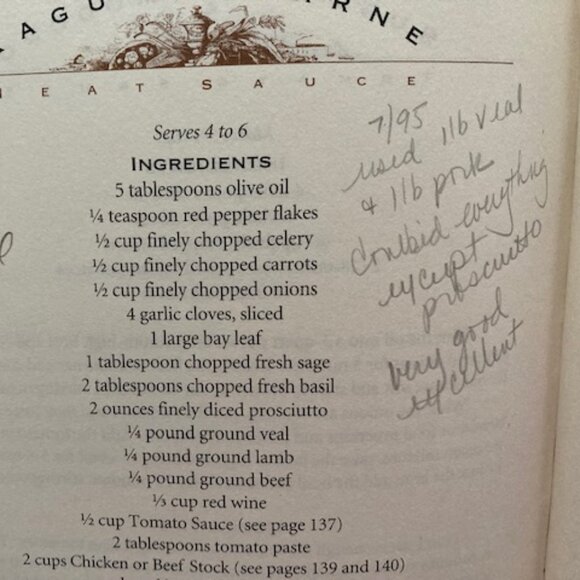 AGU RNE
MEAT SAUCE
Serves 4 to 6
INGREDIENTS
5 tablespoons olive oil
¼ teaspoon red pepper flakes
½ cup finely chopped celery
½ cup finely chopped carrots
½ cup finely chopped onions
4 garlic cloves, sliced
1 large bay leaf
1 tablespoon chopped fresh sage
2 tablespoons chopped fresh basil
2 ounces finely diced prosciutto
¼ pound ground veal
¼ pound ground lamb
¼ pound ground beef
⅓ cup red wine
½ cup Tomato Sauce (see page 137)
2 tablespoons tomato paste
2 cups Chicken or Beef Stock (see pages 139 and 140)
7/95
used 1 lb veal
& 1 lb pork
Doubled everything
except
prosciutto
very good
excellent